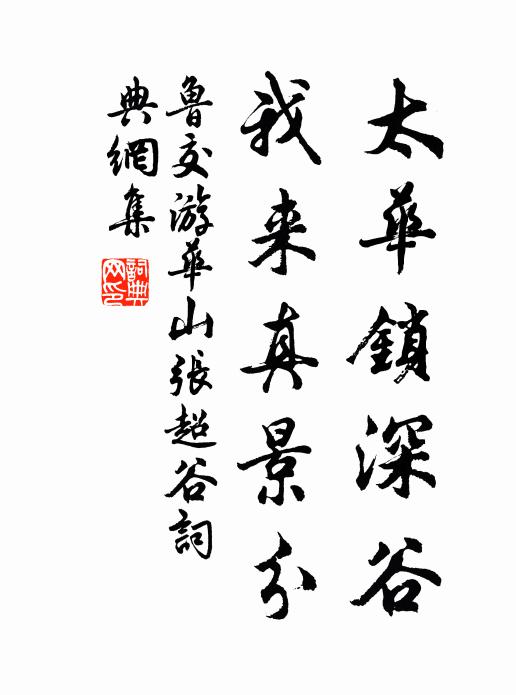 太華鎖深谷
我来真景分
魯交游華山張超谷詞
典網集
詞典網印